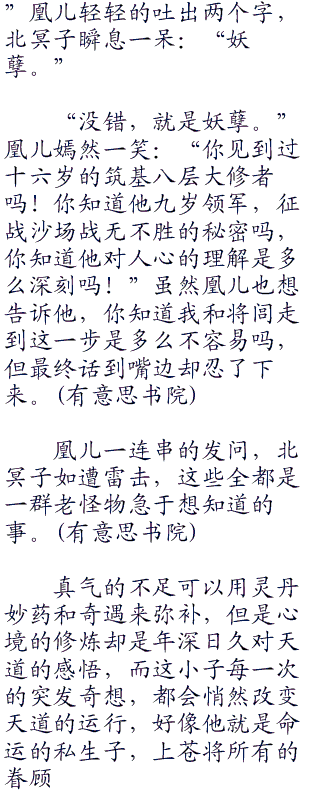 ”凰儿轻轻的吐出两个字，
北冥子瞬息一呆：“妖
孽。”
“没错，就是妖孽。”
凰儿嫣然一笑：“你见到过
十六岁的筑基八层大修者
吗！你知道他九岁领军，征
战沙场战无不胜的秘密吗，
你知道他对人心的理解是多
么深刻吗！”虽然凰儿也想
告诉他，你知道我和将闾走
到这一步是多么不容易吗，
但最终话到嘴边却忍了下
来。(有意思书院)
凰儿一连串的发问，北
冥子如遭雷击，这些全都是
一群老怪物急于想知道的
事。(有意思书院)
真气的不足可以用灵丹
妙药和奇遇来弥补，但是心
境的修炼却是年深日久对天
道的感悟，而这小子每一次
的突发奇想，都会悄然改变
天道的运行，好像他就是命
运的私生子，上苍将所有的
眷顾